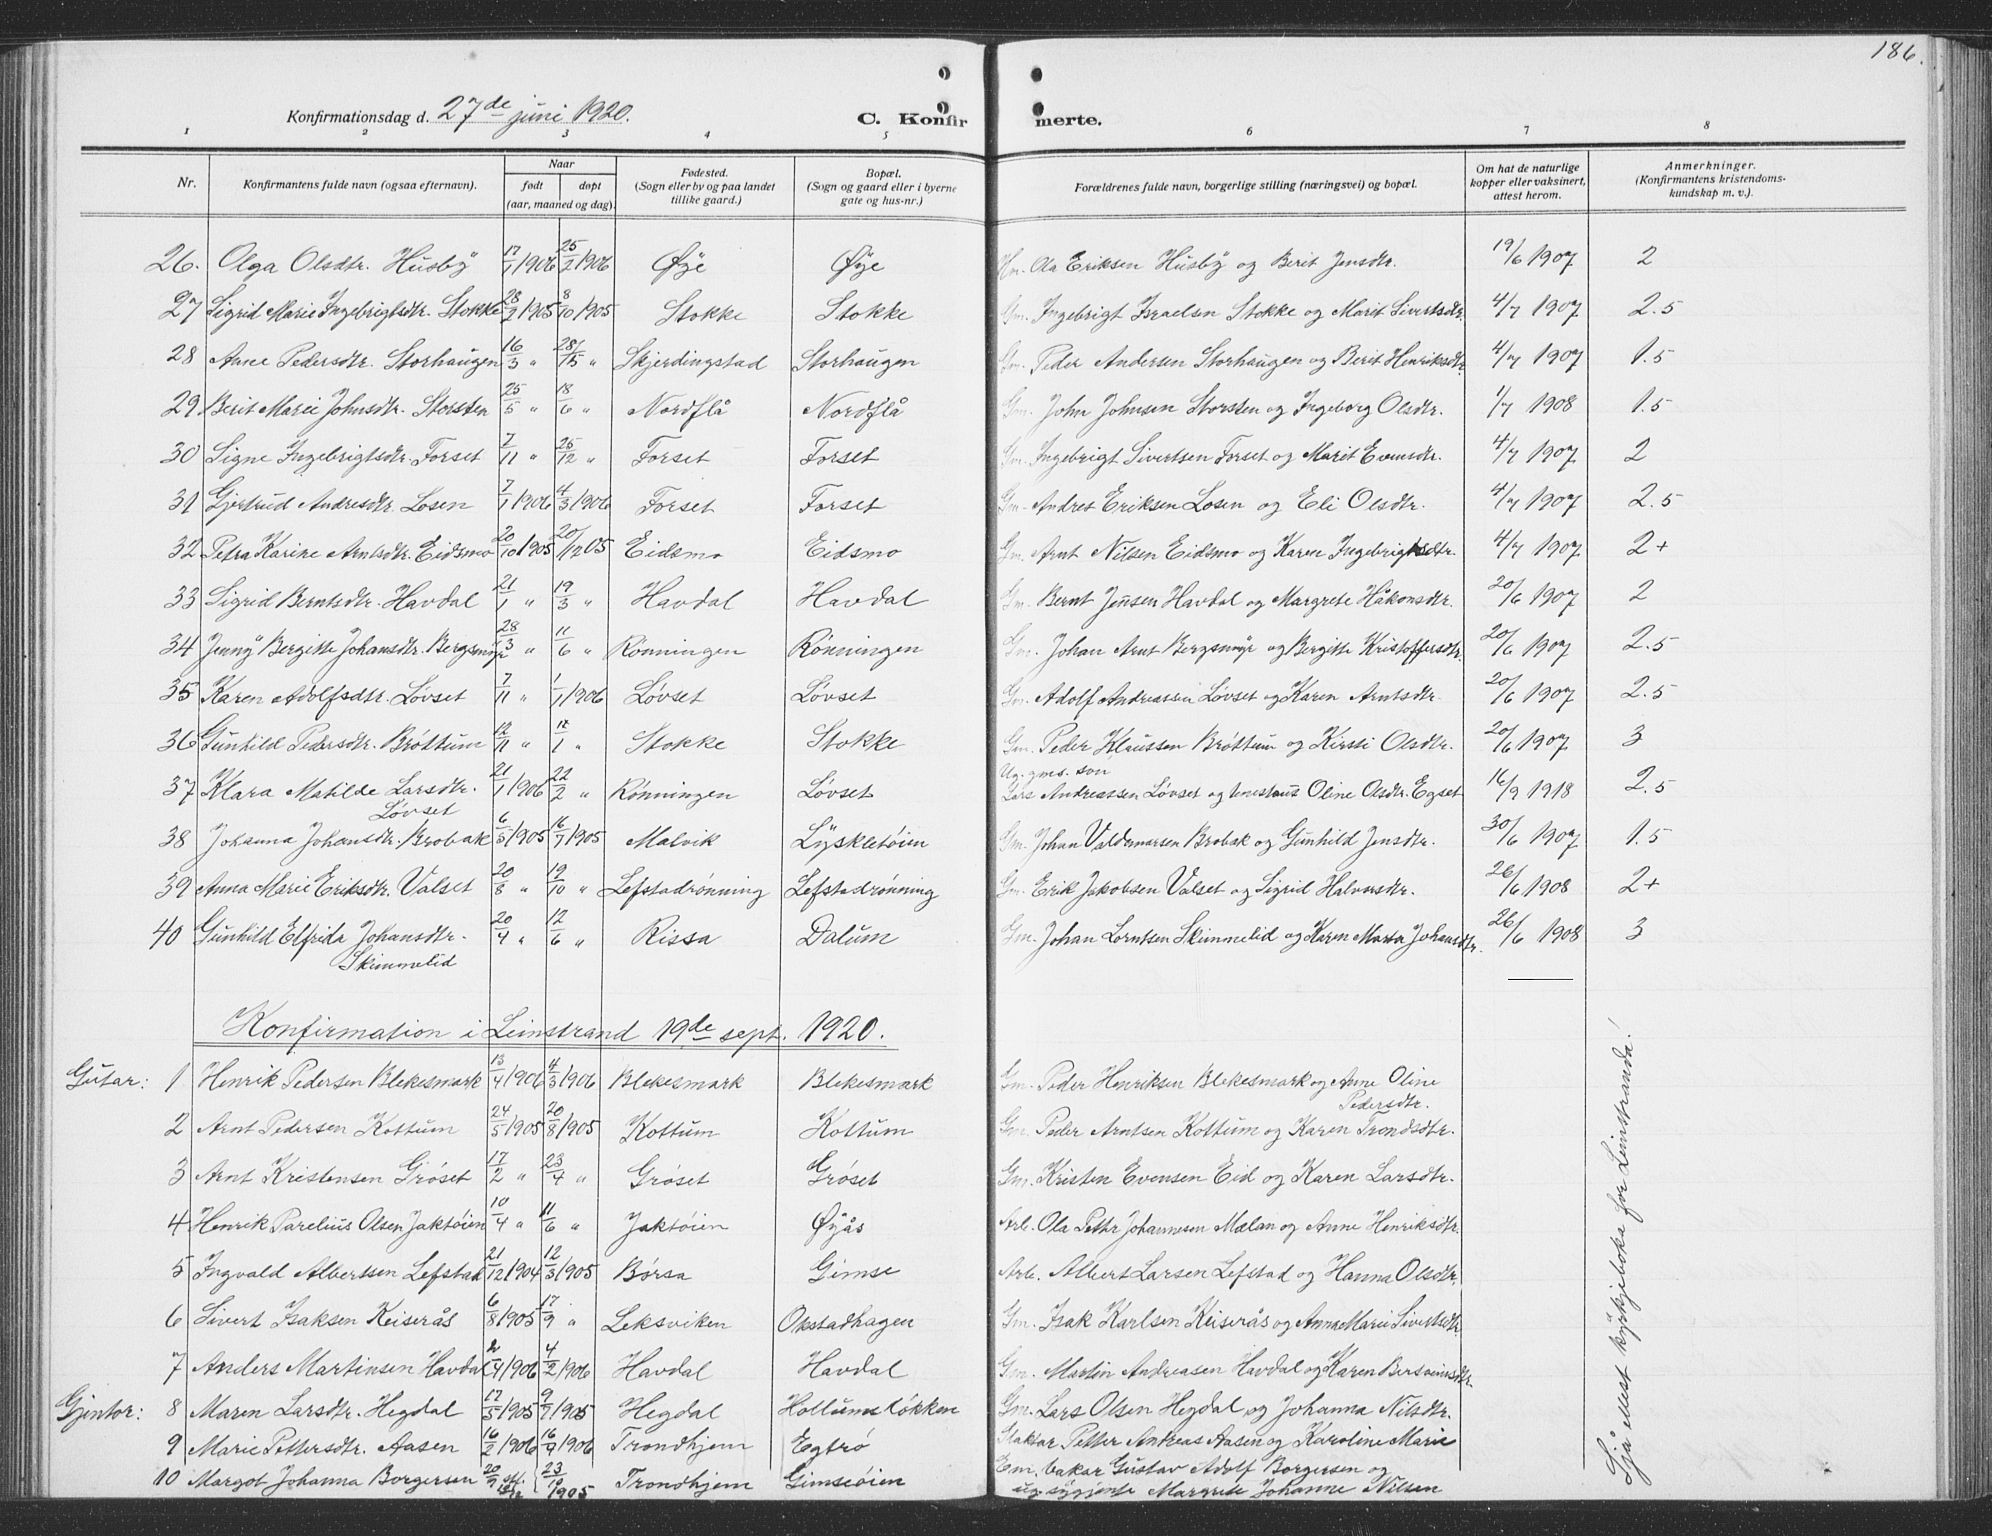 186.
Konfirmationsdag d. 27de juni 1920.
C. Konfirmerte.
1 2 3 4 5 6 7 8
Nr. Konfirmantens fulde navn (ogsaa efternavn). Naar født døpt (aar, maaned og dag). Fødested. (Sogn eller by og paa landet tillike gaard.) Bopæl. (Sogn og gaard eller i byerne gate og hus-nr.) Forældrenes fulde navn, borgerlige stilling (næringsvei) og bopæl. Om hat de naturlige kopper eller vaksinert, attest herom. Anmerkninger. (Konfirmantens kristendomskundskap m. v.).
26. Olga Olsdtr. Husby 17/1 1906 25/2 1906 Øye Øye Ola Eriksen Husby og Berit Jensdtr. 19/6 1907 2
27 Sigrid Marie Ingebrigtsdtr. Stokke 28/2 1905 8/10 1905 Stokke Stokke Gm. Ingebrigt Israelsen Stokke og Marit Sivertsdtr. 4/7 1907 2.5
28 Anne Pedersdtr. Storhaugen 16/3 " 28/5 " Skjerdingstad Storhaugen Gm. Peder Andersen Storhaugen og Berit Henriksdtr. 4/7 1907 1.5
29 Berit Marie Johnsdtr. Storsten 25/5 " 18/6 " Nordflå Nordflå Gm. John Johnsen Storsten og Ingeborg Olsdtr. 1/7 1908 1.5
30 Signe Ingebrigtsdtr. Forset 7/11 " 25/12 " Forset Forset Gm. Ingebrigt Sivertsen Forset og Marit Evensdtr. 4/7 1907 2
31 Gjertrud Andresdtr. Losen 7/1 1906 4/3 1906 Forset Forset Gm. Andres Eriksen Losen og Eli Olsdtr. 4/7 1907 2.5
32 Petra Karine Arntsdtr. Eidsmo 20/10 1905 20/12 05 Eidsmo Eidsmo Gm. Arnt Nilsen Eidsmo og Karen Ingebrigtsdtr. 4/7 1907 2+
33 Sigrid Berntsdtr. Havdal 21/1 " 19/3 " Havdal Havdal Gm. Bernt Jensen Havdal og Margrete Håkonsdtr. 20/6 1907 2
34 Jenny Bergitte Johansdtr. Bergsmyr 28/3 " 11/6 " Rønningen Rønningen Gm. Johan Arnt Bergsmyr og Bergitte Kristoffersdtr. 20/6 1907 2.5
35 Karen Adolfsdtr. Løvset 7/11 " 1/1 1906 Løvset Løvset Gm. Adolf Andreassen Løvset og Karen Arntsdtr. 20/6 1907 2.5
36 Gunhild Pedersdtr. Brøttum 12/11 " 1/1 " Stokke Stokke Gm. Peder Klaussen Brøttum og Kirsti Olsdtr. 20/6 1907 3
37 Klara Matilde Larsdtr. Løvset 21/1 1906 22/2 " Rønningen Løvset Ug. gms. son Lars Andreassen Løvset og Oline Olsdtr. Egset 16/9 1918 2.5
38 Johanna Johansdtr. Brobak 6/5 1905 16/7 1905 Malvik Lyskletøien Gm. Johan Valdemarsen Brobak og Gunhild Jensdtr. 30/6 1907 1.5
39 Anna Marie Eriksdtr. Valset 20/8 " 19/10 " Lefstadrønning Lefstadrønning Gm. Erik Jakobsen Valset og Sigrid Halvorsdtr. 26/6 1908 2+
40 Gunhild Elfrida Johansdtr. Skimmelid 20/4 " 12/6 " Rissa Dalum Gm. Johan Lorntsen Skimmelid og Karen Marta Johansdtr. 26/6 1908 3
Konfirmation i Leinstrand 19de sept. 1920.
Gutar: 1 Henrik Pedersen Blekesmark 13/4 1906 4/3 1906 Blekesmark Blekesmark Gm. Peder Henriksen Blekesmark og Anne Oline Pedersdtr.
2 Arnt Pedersen Kottum 24/5 1905 20/8 1905 Kottum Kottum Gm. Peder Arntsen Kottum og Karen Trondsdtr.
3 Arnt Kristensen Grøset 17/2 " 23/4 " Grøset Grøset Gm. Kristen Evensen Eid og Karen Larsdtr.
4 Henrik Parelius Olsen Jaktøien 10/4 " 11/6 " Jaktøien Øyås Arb. Ola Petter Johannesen Mælan og Anne Henriksdtr.
5 Ingvald Albertssen Lefstad 21/12 1904 12/3 1905 Børsa Gimse Arb. Albert Larsen Lefstad og Hanna Olsdtr.
6 Sivert Isaksen Keiserås 6/8 1905 17/9 " Leksviken Okstadhagen Gm. Isak Karlsen Keiserås og Anna Marie Sivertsdtr.
7 Anders Martinsen Havdal 2/1 1906 4/2 1906 Havdal Havdal Gm. Martin Andreasen Havdal og Karen Bersvensdtr.
Gjentor: 8 Maren Larsdtr. Hegdal 17/5 1905 9/7 1905 Hegdal Hollumsløkken Gm. Lars Olsen Hegdal og Johanna Nilsdtr.
9 Marie Pettersdtr. Aasen 16/2 1906 16/4 1906 Trondhjem Egtrø Slaktar Petter Andreas Aasen og Karoline Marie
10 Margot Johanna Borgersen 20/9 23/12 1905 Trondhjem Gimseøien Em. bakar Gustav Adolf Borgersen og ug. syjente Margrete Johanne Nilsen
Sjå elles kyrkjeboka for Leinstranda!